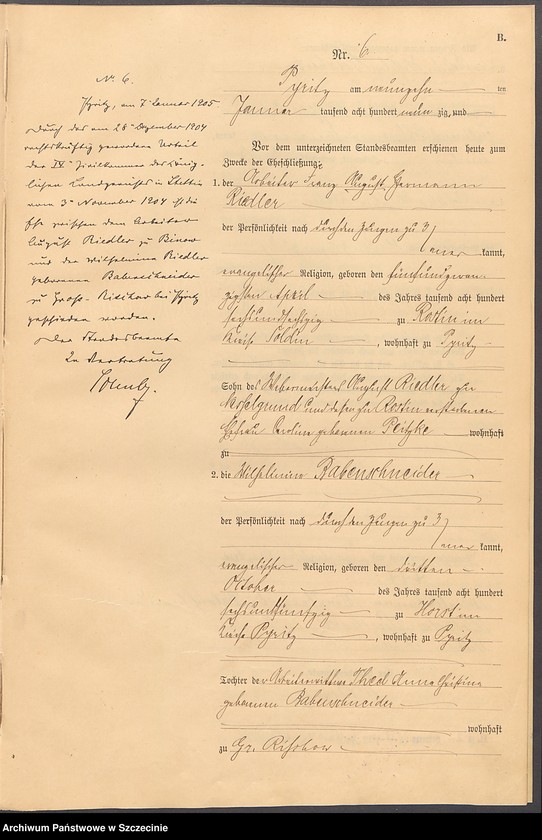 B.
Nr. 6.
Pyritz am neunzehn ten
Januar tausend acht hundert neun zig, und
Vor dem unterzeichneten Standesbeamten erschienen heute zum
Zwecke der Eheschließung:
1. der Arbeiter Franz August Hermann
Riedler
der Persönlichkeit nach durch den Zeugen zu 3
aner kannt,
evangelischer Religion, geboren den fünfundzwan-
zigsten April des Jahres tausend acht hundert
sechsundsechzig zu Rostin im
Kreise Soldin, wohnhaft zu Pyritz
Sohn des Webermeisters August Riedler zu
und dessen zu Rostin verstorbenen
Ehefrau geborenen wohnhaft
zu
2. die Wilhelmine Babenschneider
der Persönlichkeit nach durch den Zeugen zu 3
aner kannt,
evangelischer Religion, geboren den dritten
October des Jahres tausend acht hundert
sechsundfünfzig zu Horst im
Kreise Pyritz, wohnhaft zu Pyritz
Tochter der Arbeiterwittwe Anna Christine
geborenen Babenschneider
wohnhaft
zu Gr. Rischow
No 6.
Pyritz, am 7. Januar 1905
Durch das am 28. Dezember 1904
rechtskräftig gewordene Urteil
der IV. Zivilkammer des König-
lichen Landgerichts in Stettin
vom 3. November 1904 ist die
Ehe zwischen dem Arbeiter
August Riedler zu Binow
und der Wilhelmine Riedler
geborenen Babenschneider
zu Groß- bei Pyritz
geschieden worden.
Der Standesbeamte
In Vertretung
Archiwum Państwowe w Szczecinie